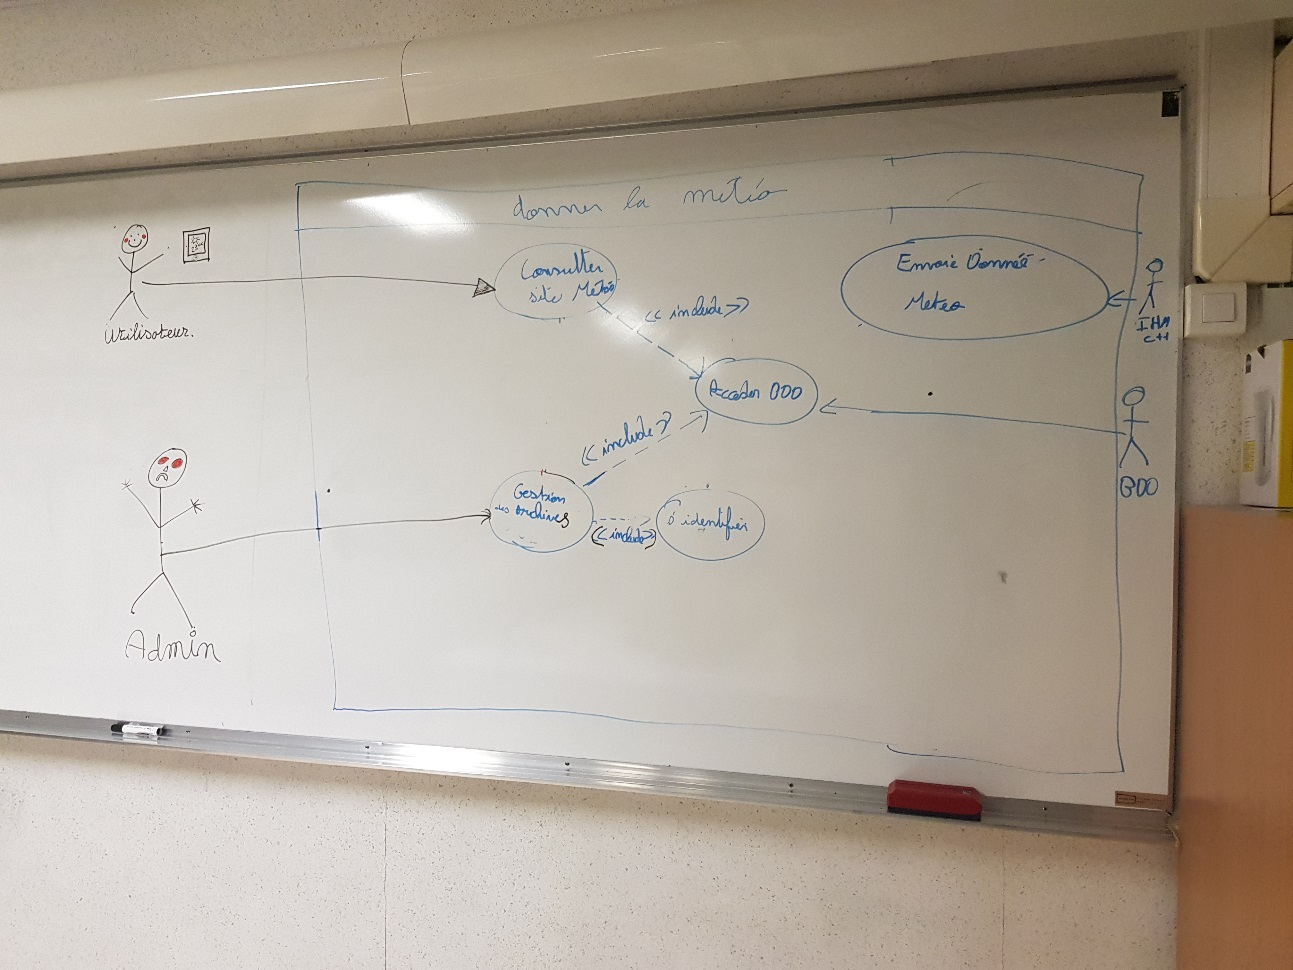 donner la météo
Utilisateur.
Consulter
site Météo
<< include >>
Envoie Donnée
Meteo
IHM
C++
Acceder BDD
<< include >>
BDD
Gestion
des archives
<< include >>
S'identifier
Admin